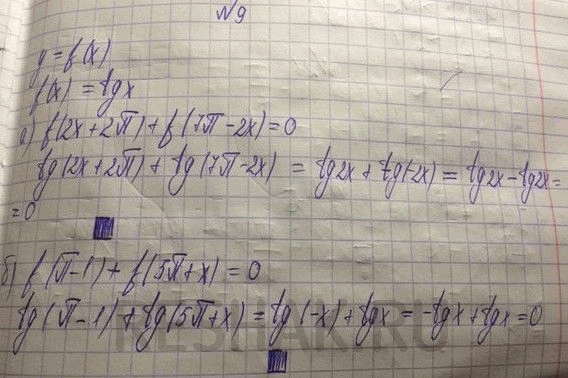 №9
y = f(x)
f(x) = tgx
а) f(2x+2π)+f(7π-2x)=0
tg(2x+2π)+tg(7π-2x) = tg2x+tg(-2x) = tg2x-tg2x=
=0
б) f(π-1)+f(5π+x)=0
tg(π-1)+tg(5π+x)=tg(-x)+tgx=-tgx+tgx=0
RESHAK.RU